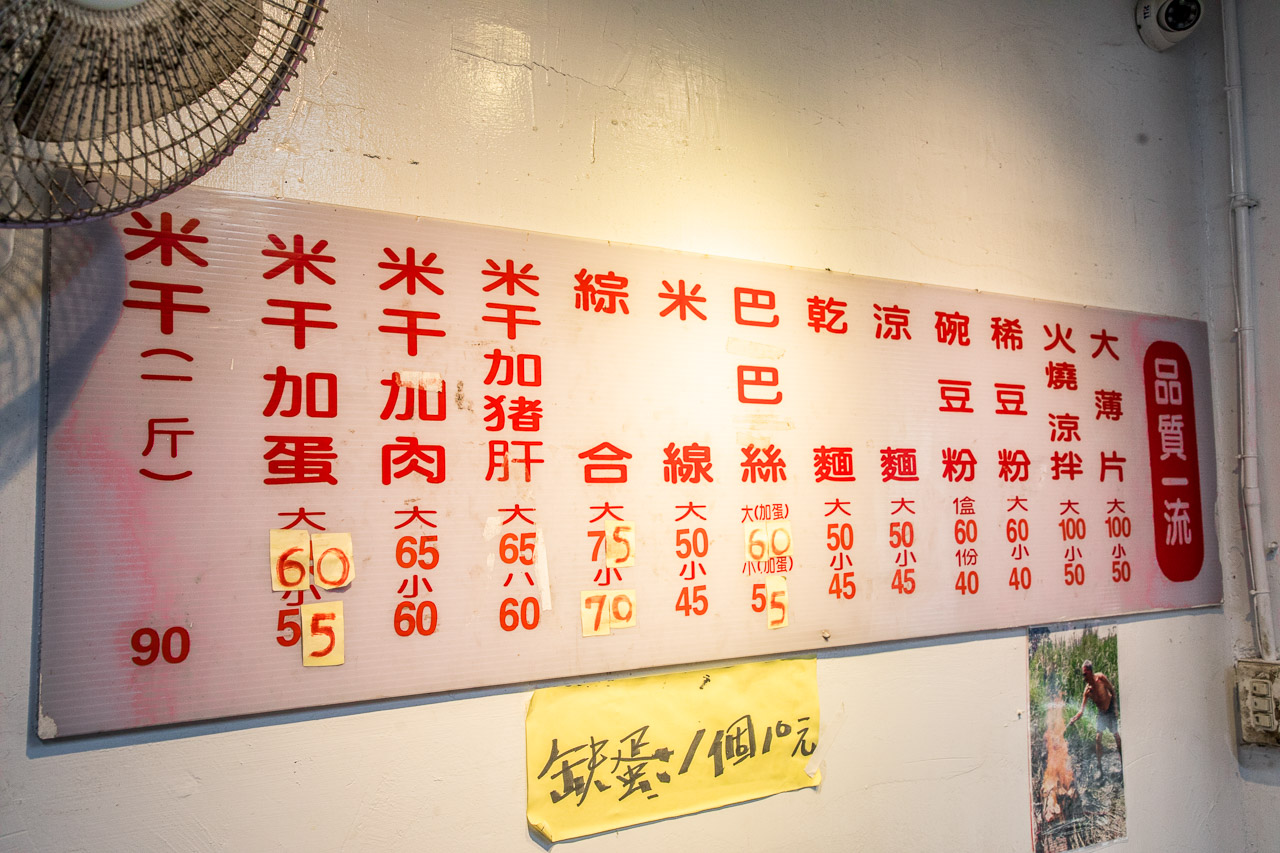 品質一流
大薄片 大100 小50
火燒涼拌 大100 小50
稀豆粉 大60 小40
碗豆粉 1盒60 1份40
涼麵 大50 小45
乾麵 大50 小45
巴巴絲 大(加蛋)60 小(加蛋)55
米線 大50 小45
綜合 大75 小70
米干加猪肝 大65 小60
米干加肉 大65 小60
米干加蛋 大60 小55
米干(一斤) 90
鉄蛋:1個10元